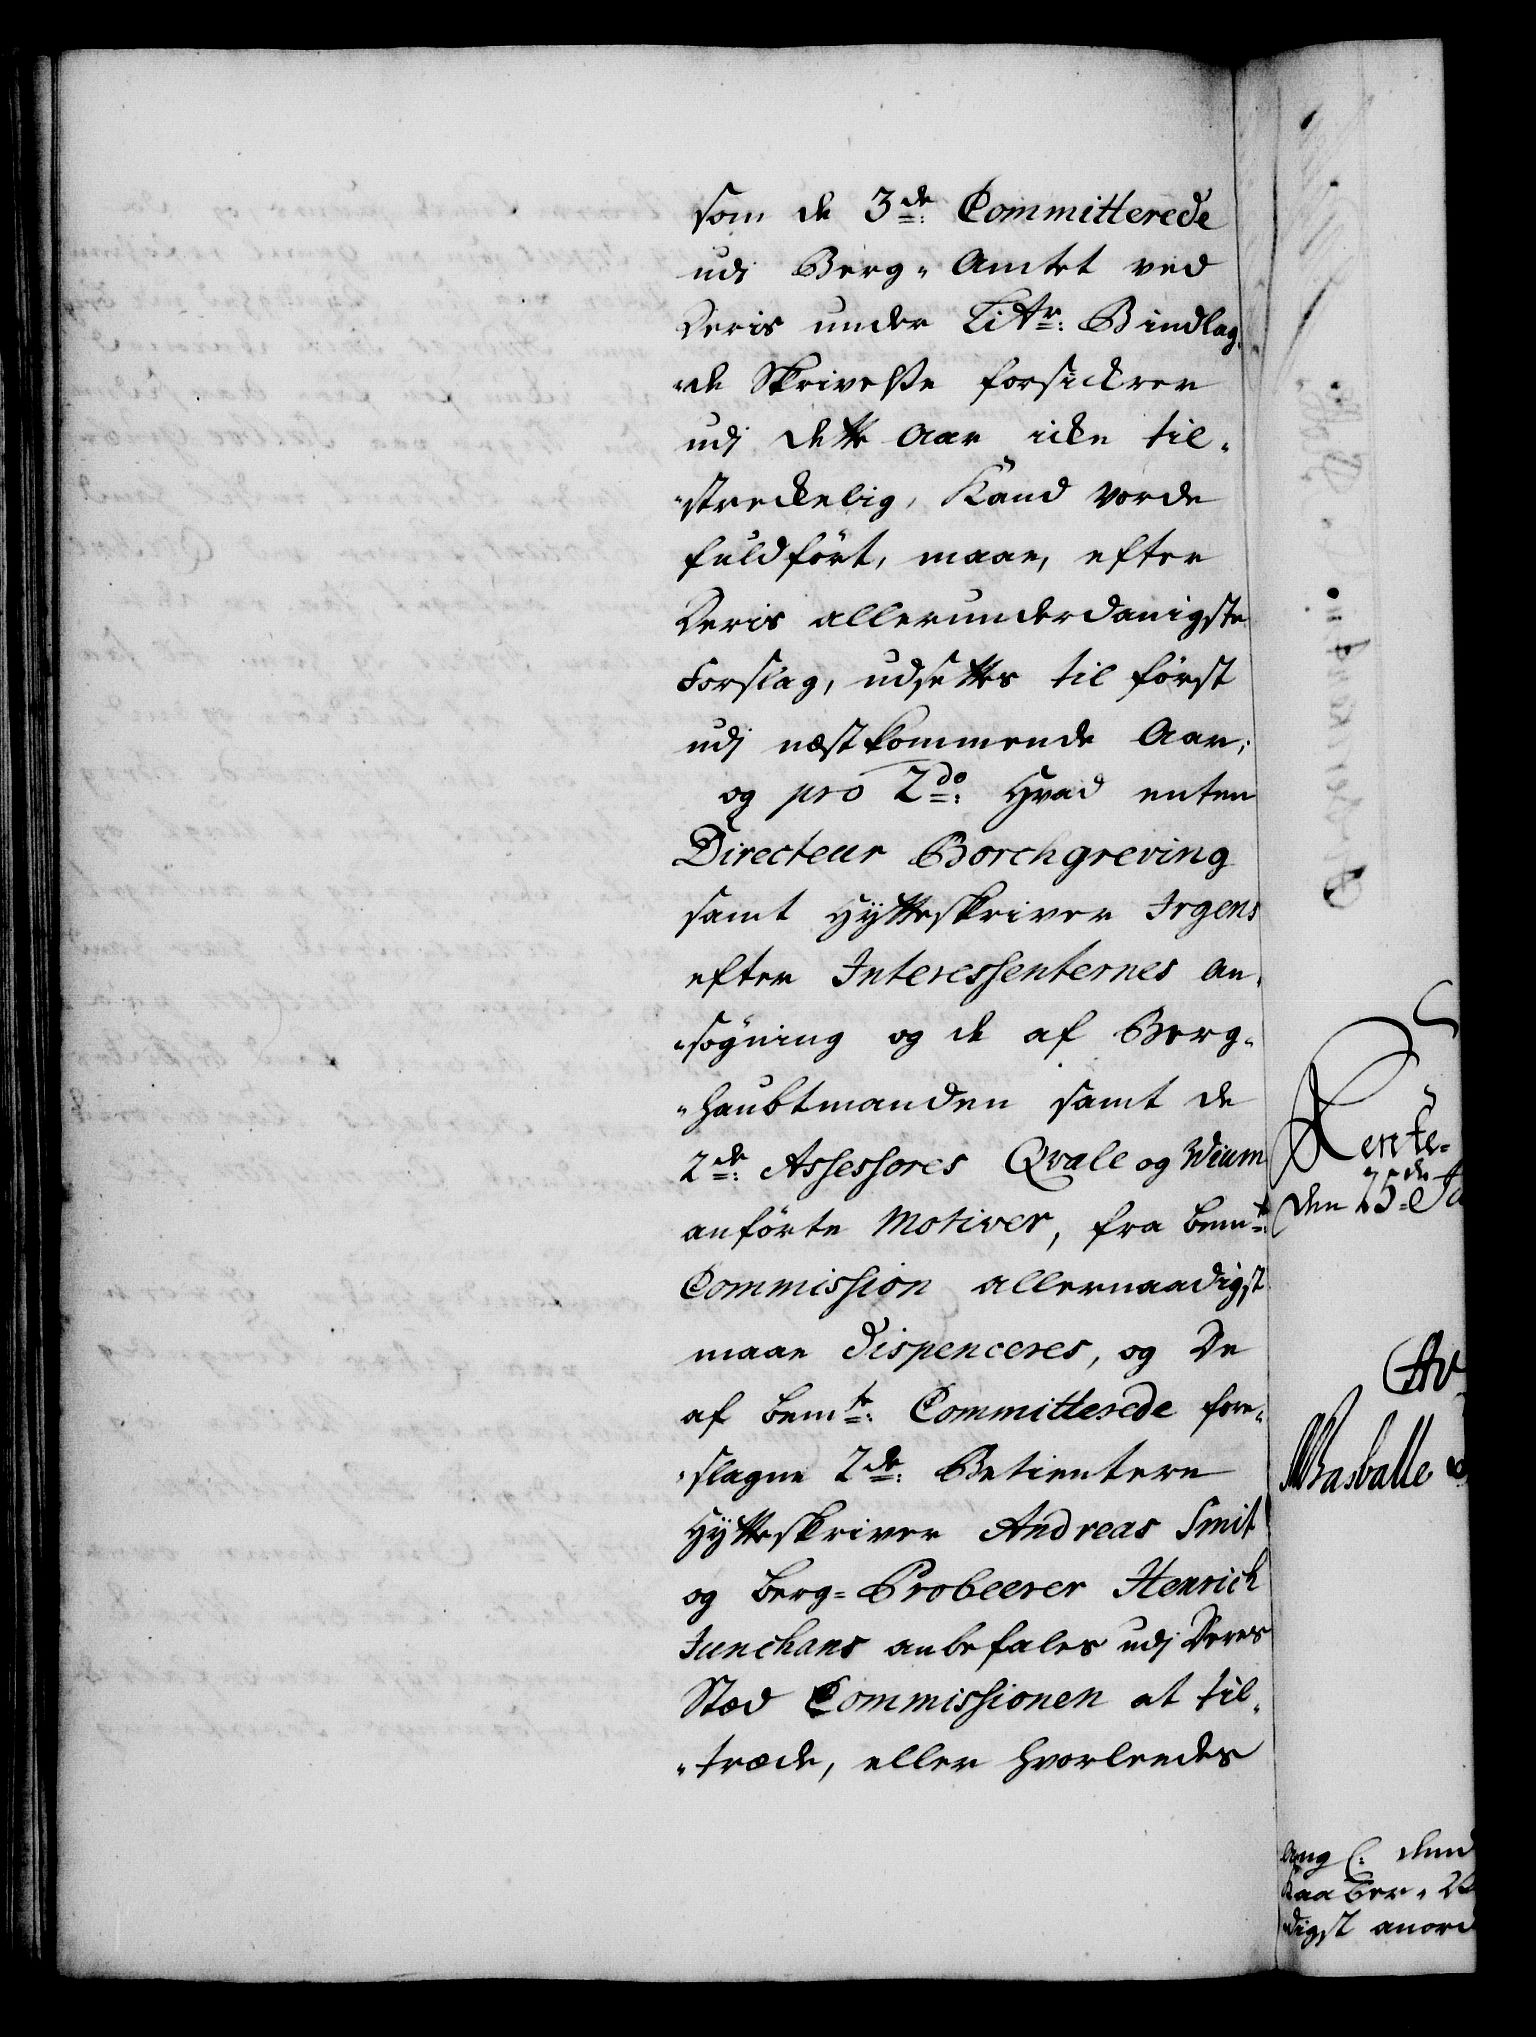 som de 3de: Committerede
udj Berg-Amtet ved
Deris under Litr: B indlag-
de Skrivelse forsickrer
udj dette Aar icke til-
streckelig, Kand vorde
fuldført, maae, efter
Deris allerunderdanigste
Forslag, udsettes til først
udj næstkommende Aar;
og pro 2do: Hvad enten
Directeur Borchgreving
samt Hytteskriver Irgens
efter Interessenternes an-
søgning og de af Berg-
haubtmanden samt de
2de: Assessores Qvale og Wium
anførte Motiver, fra bemte:
Commission allernaadigst
maae dispenceres, og De
af bemte: Committerede fore-
slagne 2de: Betientere
Hytteskriver Andreas Smit
og Berg-Probeerer Henrich
Junchans anbefales udj Deres
Stæd Commissionen at til-
træde, eller hvorledes
Rente-
den 25de Ja
digst anord